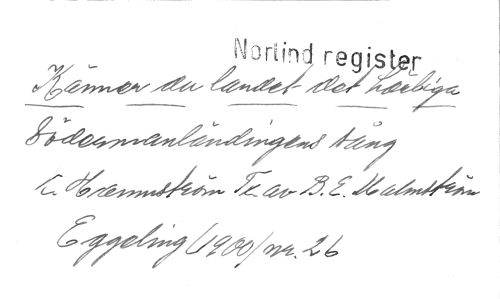 Norlind register
Känner du landet det härliga
Södermanländingens sång
C. Hammström Tx av B.E. Malmström
Eggeling (1900) nr. 26